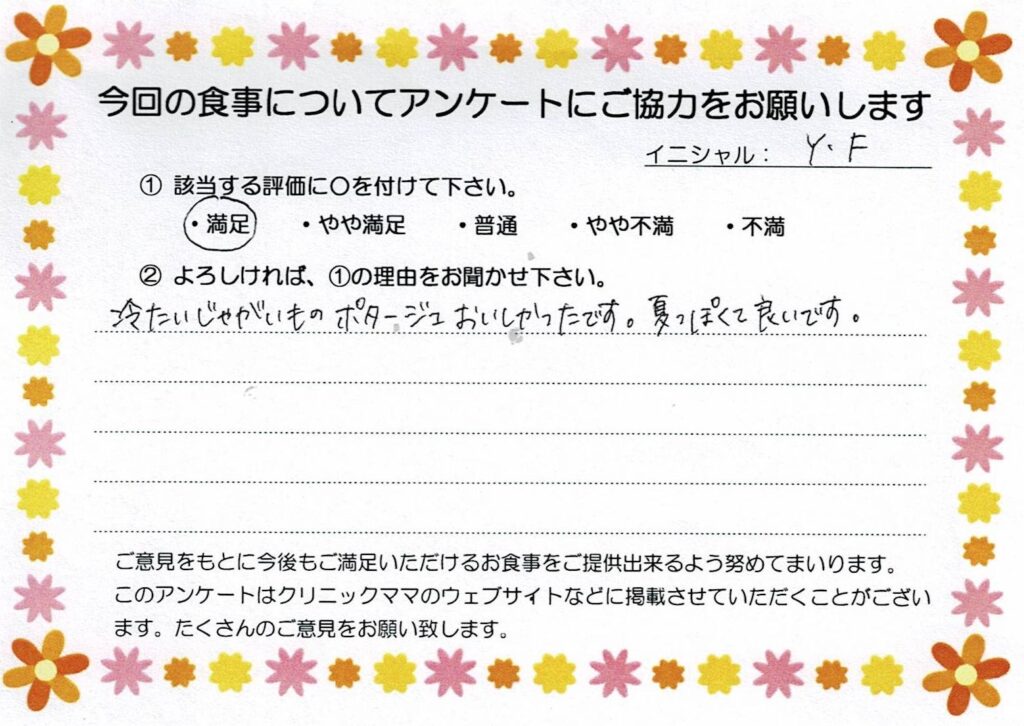 今回の食事についてアンケートにご協力をお願いします
イニシャル： Y.F
① 該当する評価に〇を付けて下さい。
・満足 ・やや満足 ・普通 ・やや不満 ・不満
② よろしければ、①の理由をお聞かせ下さい。
冷たいじゃがいものポタージュおいしかったです。夏っぽくて良いです。
ご意見をもとに今後もご満足いただけるお食事をご提供出来るよう努めてまいります。
このアンケートはクリニックママのウェブサイトなどに掲載させていただくことがござい
ます。たくさんのご意見をお願い致します。